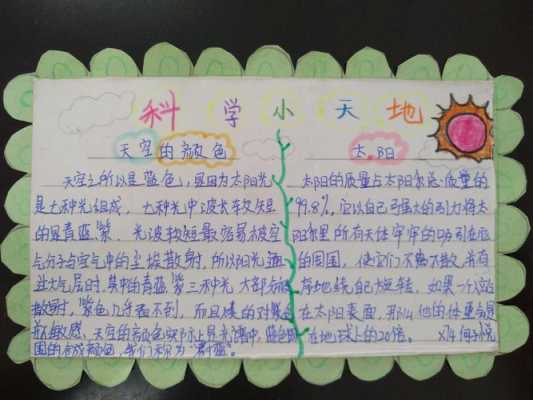 科学小天地
天空的颜色
天空之所以是蓝色,是因为太阳光
是七种光组成,七种光中波长较短
的是青蓝紫,光波较短最容易被空
气分子与空气中的尘埃散射,所以阳光
过大气层时,其中的青蓝紫三种光大部分
散射,紫色几乎看不到,而且
敏感,天空的颜色实际上是光谱中蓝色
围的合成颜色,我们称为"蔚蓝"。
太阳
太阳的质量占太阳系总质量的
99.8%,它以自己强大的引力将太
阳系里所有天体牢牢的吸引在
的周围,使它们不离不散,并有
序地绕自己旋转,如果一个人站
在太阳表面,那么他的体重会是
在地球上的20倍。